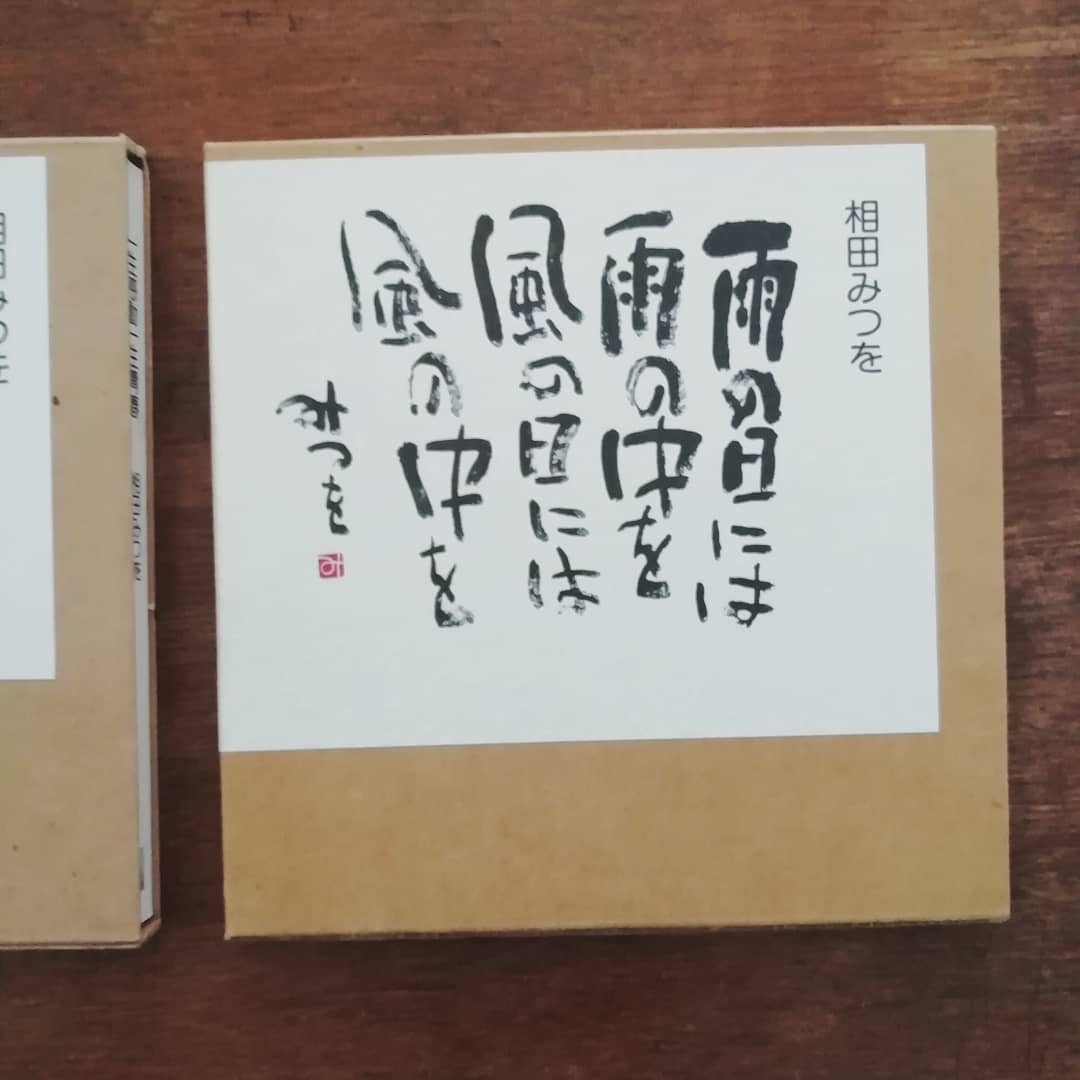 相田みつを
雨の日には
雨の中を
風の日には
風の中を
みつを
み
相田みつを